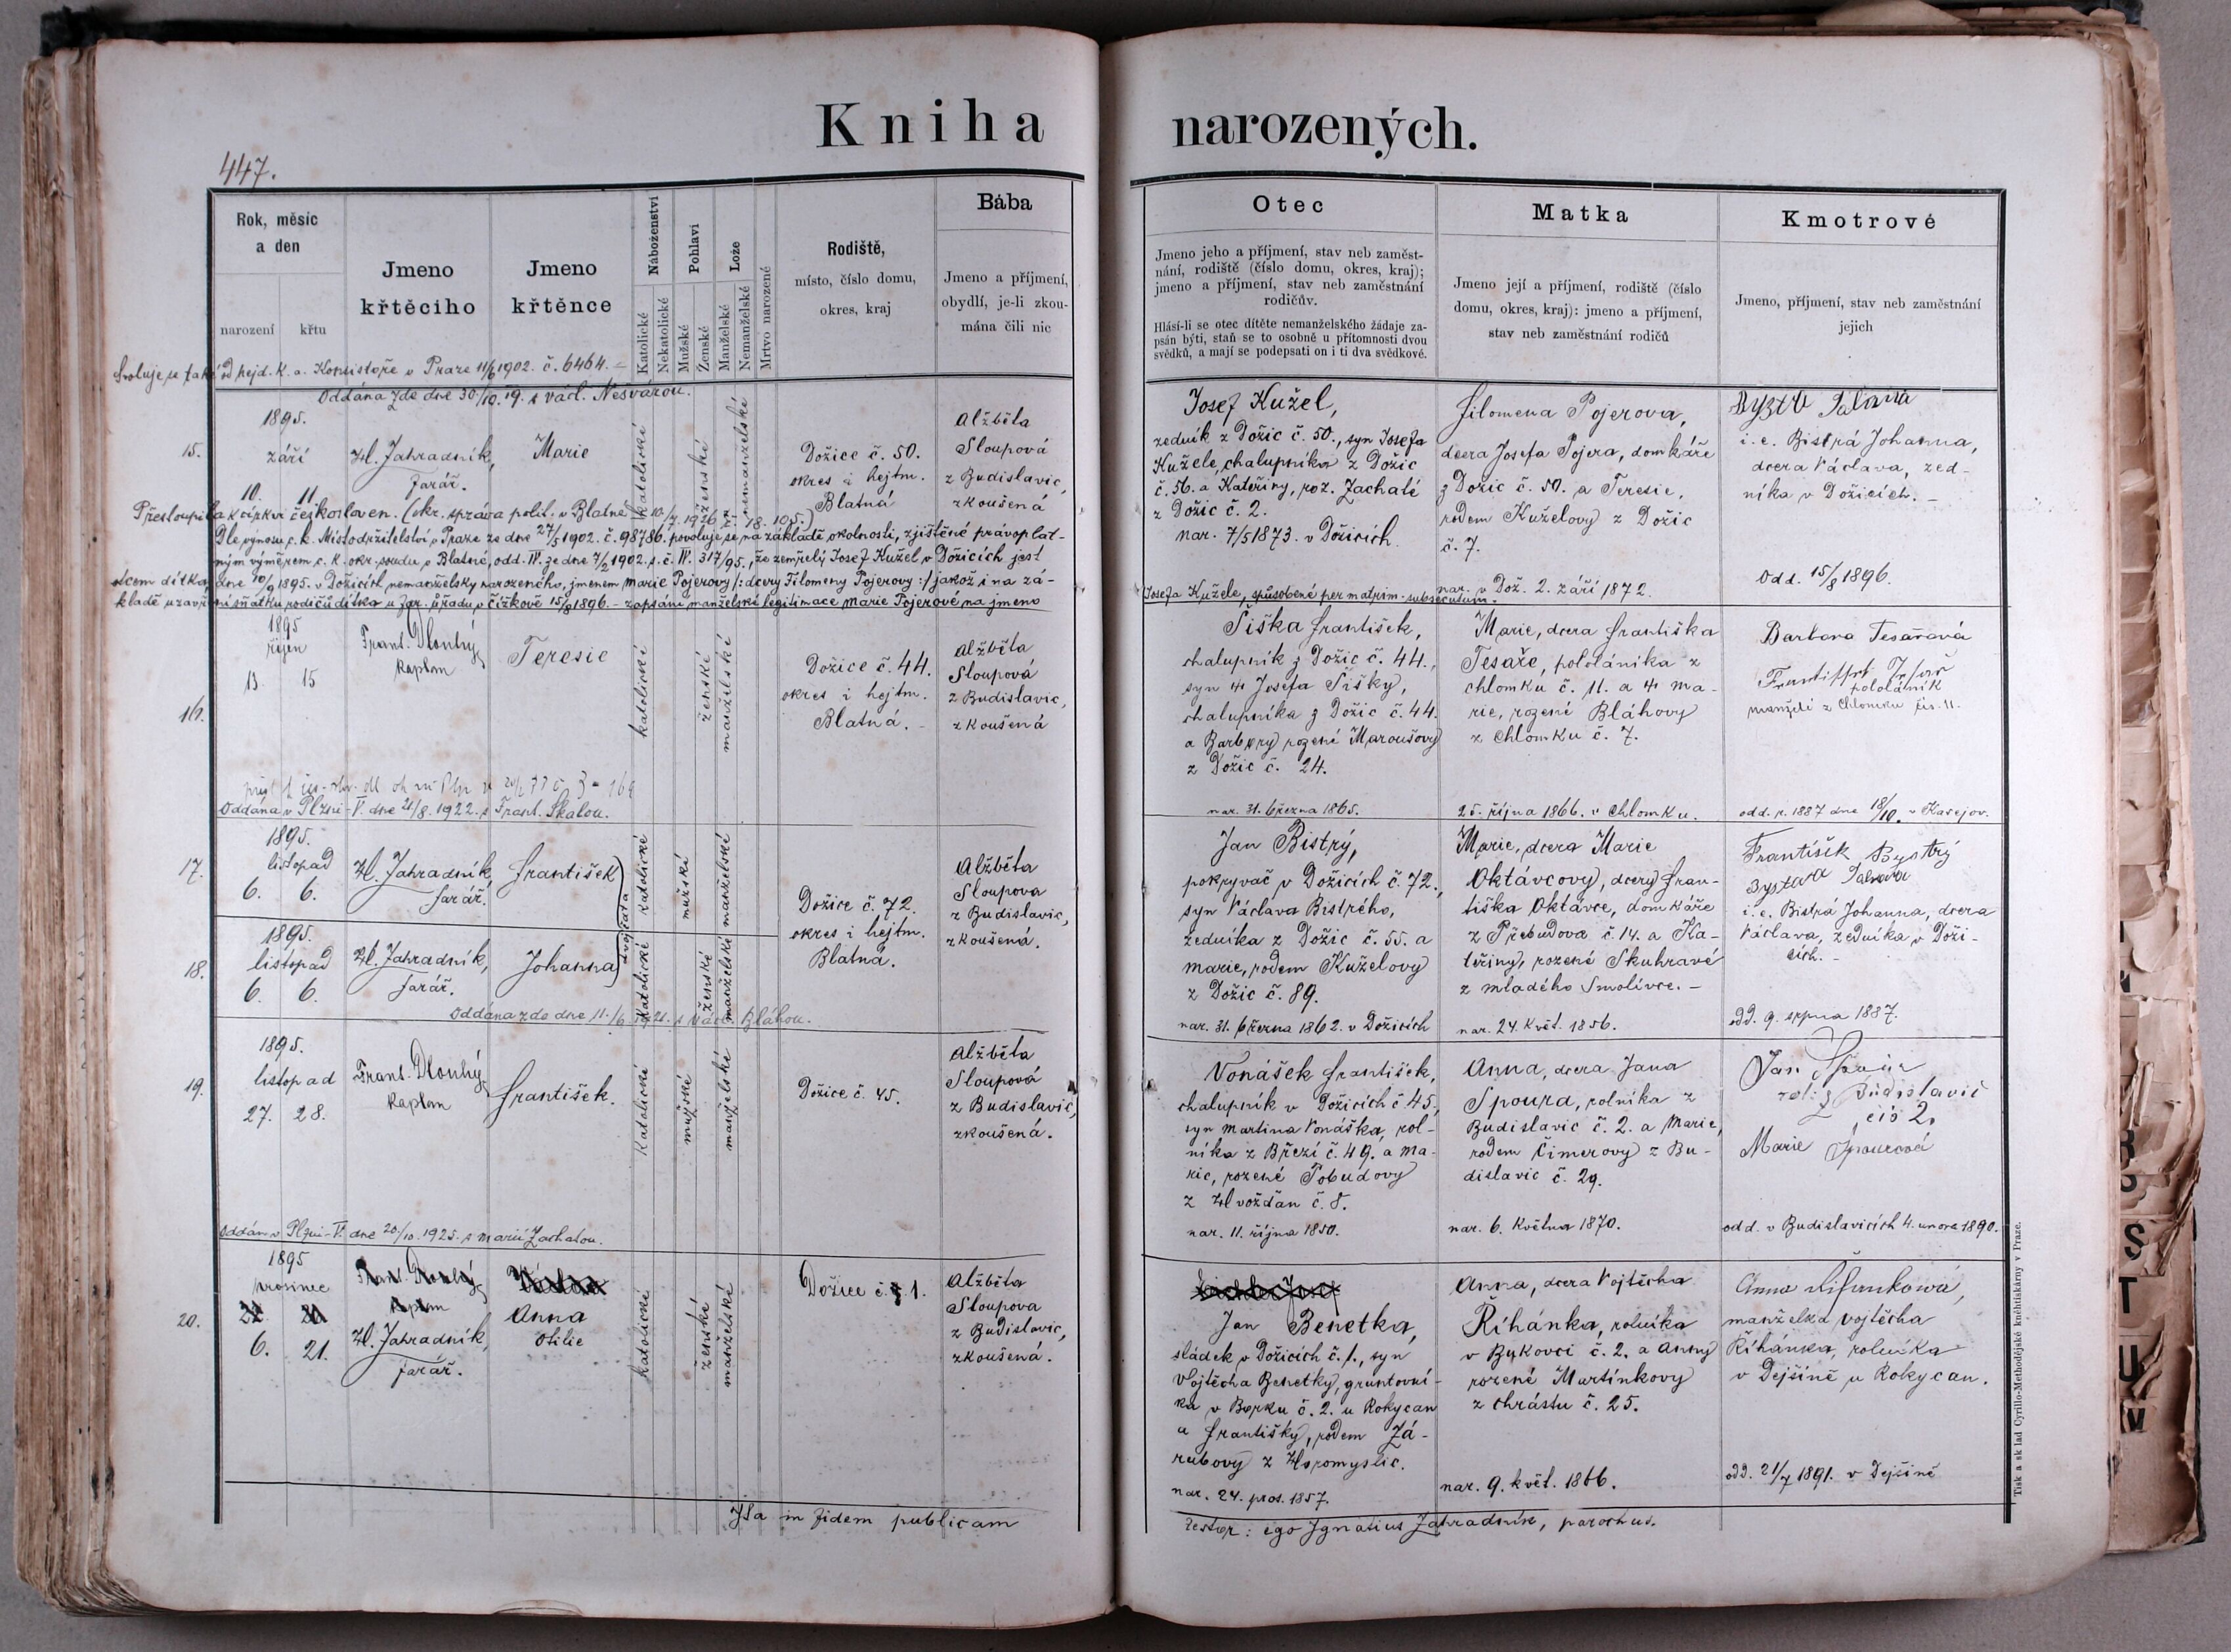 Kniha narozených.
447.
Rok, měsíc
a den
narození
křtu
Jmeno
křtěcího
Jmeno
křtěnce
Náboženství
Katolické
Nekatolické
Pohlaví
Mužské
Ženské
Lože
Manželské
Nemanželské
Mrtvo narozené
Rodiště,
místo, číslo domu,
okres, kraj
Bába
Jmeno a příjmení,
obydlí, je-li zkou-
mána čili nic
Otec
Jmeno jeho a příjmení, stav neb zaměst-
nání, rodiště (číslo domu, okres, kraj);
jmeno a příjmení, stav neb zaměstnání
rodičův.
Hlásí-li se otec dítěte nemanželského žádaje za-
psán býti, staň se to osobně u přítomnosti dvou
svědků, a mají se podepsati on i ti dva svědkové.
Matka
Jmeno její a příjmení, rodiště (číslo
domu, okres, kraj): jmeno a příjmení,
stav neb zaměstnání rodičů
Kmotrové
Jmeno, příjmení, stav neb zaměstnání
jejich
Svoluje se také od nejd. k. a. Konsistoře v Praze 11/6 1902. č. 6464.
Oddána zde dne 30/10. 19. s Václ. Nesvárou.
15.
1895.
září
10. 11.
Ign. Zahradník,
farář.
Marie
katolické
ženské
nemanželské
Dožice č. 50.
okres i hejtm.
Blatná
Alžběta
Sloupová
z Budislavic,
zkoušená
Josef Kužel,
zedník z Dožic č. 50., syn Josefa
Kužele, chalupníka z Dožic
č. 56. a Kateřiny, roz. Zachaté
z Dožic č. 2.
nar. 7/5 1873. v Dožicích.
Filomena Pojerova,
dcera Josefa Pojera, domkáře
z Dožic č. 50. a Teresie,
rodem Kuželovy z Dožic
č. 7.
nar. v Dož. 2. září 1872.
i. e. Bistrá Johanna,
dcera Václava, zed-
níka v Dožicích. –
odd. 15/8 1896.
Přestoupila k církvi českosloven. (okr. správa polit. v Blatné 10./7. 1926 č. 18.105.)
Dle výnosu c. k. Místodržitelství v Praze ze dne 27/5 1902. č. 98786. povoluje se na základě okolnosti, zjištěné právoplat-
ným výměrem c. k. okr. soudu v Blatné, odd. IV. ze dne 7/2 1902. s. č. IV. 317/95., že zemřelý Josef Kužel v Dožicích jest
otcem dítka, dne 10/9 1895. v Dožicích nemanželsky narozeného, jmenem Marie Pojerovy /: dcery Filomeny Pojerovy :/ jakož i na zá-
kladě uzavření sňatku rodičů dítka u far. úřadu v Čížkově 15/8 1896. – zapsání manželské legitimace Marie Pojerové na jmeno
Josefa Kužele, způsobené per matrim. subsecutum.
16.
1895
říjen
13. 15
Frant. Dlouhý,
kaplan
Teresie
katolické
ženské
manželské
Dožice č. 44.
okres i hejtm.
Blatná. –
Alžběta
Sloupová
z Budislavic,
zkoušená
Šiška František,
chalupník z Dožic č. 44.,
syn † Josefa Šišky,
chalupníka z Dožic č. 44.
a Barbory rozené Maroušovy
z Dožic č. 24.
nar. 31. března 1865.
Marie, dcera Františka
Tesaře, pololáníka z
Chlomku č. 11. a † Ma-
rie, rozené Bláhovy
z Chlomku č. 7.
25. října 1866. v Chlomku.
Barbora Tesařová
pololáník
manželé z Chlomku čís. 11.
odd. r. 1887 dne 18/10. v Kasejov.
Oddána v Plzni-V. dne 21/8. 1922. s Frant. Skalou.
17.
1895.
listopad
6. 6.
Ign. Zahradník,
farář.
František
dvojčata
katolické
mužské
manželské
Dožice č. 72.
okres i hejtm.
Blatná.
Alžběta
Sloupova
z Budislavic,
zkoušená.
18.
1895.
listopad
6. 6.
Ign. Zahradník,
farář.
Johanna
katolické
ženské
manželské
Oddána zde dne 11./6 1921. s Václ. Bláhou.
Jan Bistrý,
pokryvač v Dožicích č. 72.,
syn Václava Bistrého,
zedníka z Dožic č. 55. a
Marie, rodem Kuželovy
z Dožic č. 89.
nar. 31. března 1862. v Dožicích
Marie, dcera Marie
Oktávcovy, dcery Fran-
tiška Oktávce, domkáře
z Přebudova č. 14. a Ka-
teřiny, rozené Skuhravé
z mladého Smolivce. –
nar. 24. Květ. 1856.
František Bystrý
i. e. Bistrá Johanna, dcera
Václava, zedníka v Doži-
cích. –
odd. 9. srpna 1887.
19.
1895.
listopad
27. 28.
Frant. Dlouhý,
kaplan
František.
katolické
mužské
manželské
Dožice č. 45.
Alžběta
Sloupová
z Budislavic,
zkoušená.
Vonášek František,
chalupník v Dožicích č 45,
syn Martina Vonáška, rol-
níka z Březí č. 49. a Ma-
rie, rozené Pobudovy
z Hvožďan č. 8.
nar. 11. října 1850.
Anna, dcera Jana
Spoura, rolníka z
Budislavic č. 2. a Marie,
rodem Cimerovy z Bu-
dislavic č. 29.
nar. 6. Května 1870.
Jan Spour
rol. z Budislavic
čís 2.
Marie Spourová
odd. v Budislavicích 4. února 1890.
Oddán v Plzni-V. dne 20/10. 1925. s Marií Zachatou.
20.
1895
prosinec
6. 21.
Ign. Zahradník,
farář.
Anna
Otilie
katolické
ženské
manželské
Dožice č. 1.
Alžběta
Sloupova
z Budislavic,
zkoušená.
Jan Benetka,
sládek v Dožicích č. 1., syn
Vojtěcha Benetky, gruntovní-
ka v Borku č. 2. u Rokycan
a Františky, rodem Zá-
rubovy z Hromyslic.
nar. 24. pros. 1857.
Anna, dcera Vojtěcha
Říhánka, rolníka
v Bukovci č. 2. a Anny
rozené Martínkovy
z Chrástu č. 25.
nar. 9. květ. 1866.
manželka Vojtěcha
Říhánka, rolníka
v Dejšině u Rokycan.
odd. 21/7 1891. v Dejšině
Ita in fidem publicam
testor: ego Ignatius Zahradník, parochus.
Tisk a sklad Cyrillo-Methodějské knihtiskárny v Praze.
S
T
U